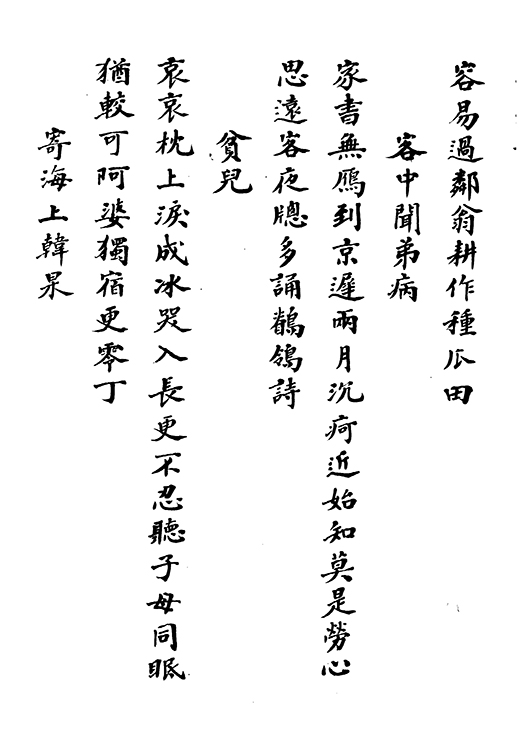 容易過鄰翁耕作種瓜田
客中聞弟病
家書無鴈到京遲兩月沉疴近始知莫是勞心
思遠客夜牕多誦鶺鴒詩
貧兒
哀哀枕上淚成冰哭入長更不忍聽子母同眠
猶較可阿婆獨宿更零丁
寄海上韓杲